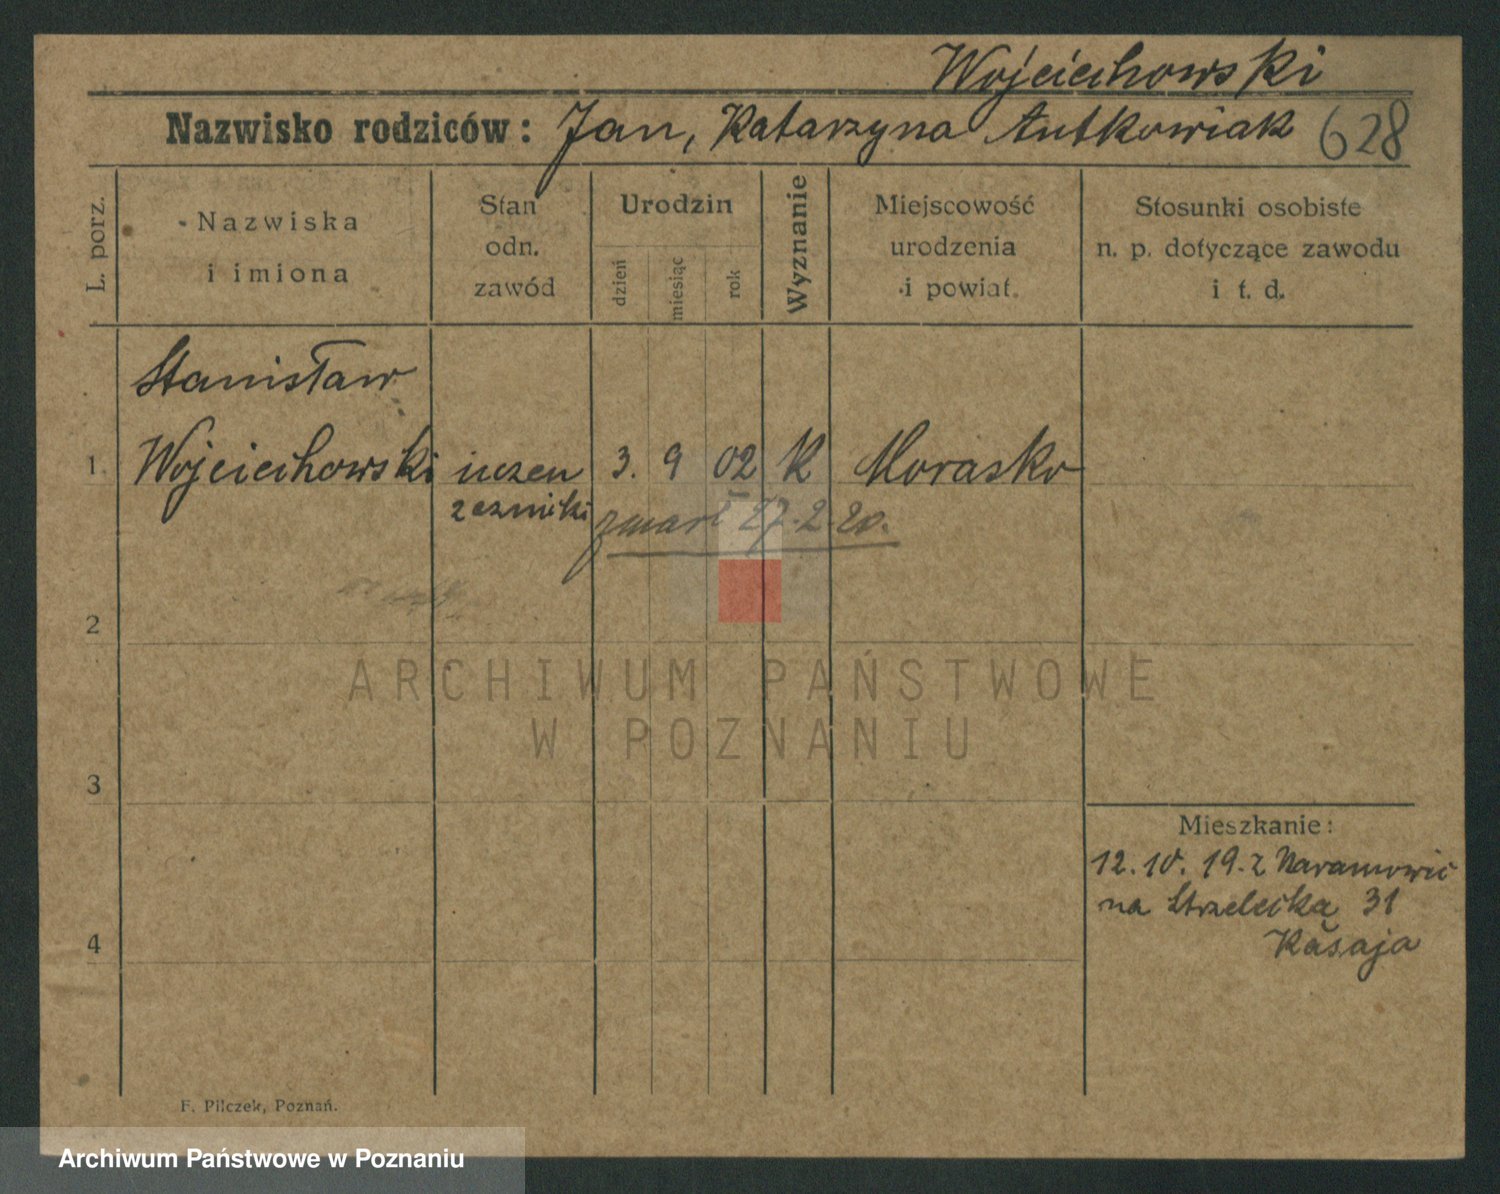 Wojciechowski
Nazwisko rodziców: Jan, Katarzyna Antkowiak 628
L. porz.
Nazwiska
i imiona
Stan
odn.
zawód
Urodzin
dzień
miesiąc
rok
Wyznanie
Miejscowość
urodzenia
i powiat.
Stosunki osobiste
n. p. dotyczące zawodu
i t. d.
Stanisław
1. Wojciechowski uczen 3. 9 02 K Morasko
rzeznicki zmarł 27.2.20.
2
ARCHIWUM PAŃSTWOWE
W POZNANIU
3
Mieszkanie:
12.10.19. z Naramowic
na Strzelecka 31
4
F. Pilczek, Poznań.
Archiwum Państwowe w Poznaniu